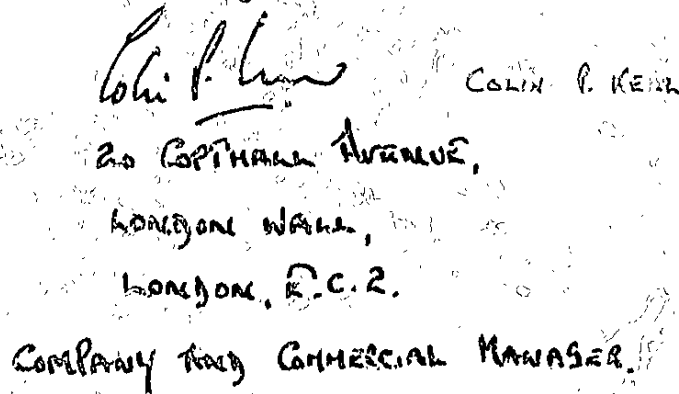 Colin P.
COLIN P.
20 COPTHALL AVENUE,
LONDON WALL,
LONDON, E.C.2.
COMPANY AND COMMERCIAL MANAGER.